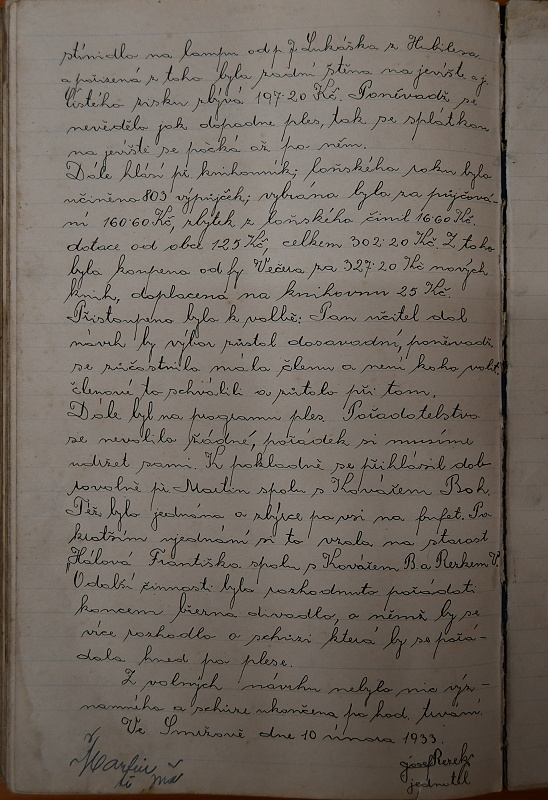 stínidlo na lampu od p. J. Lukáška z Hubilesa
a pořízena z toho byla zadní stěna na jeviště a j.
Čistého zisku zbývá 197·20 Kč. Poněvadž se
nevědělo jak dopadne ples, tak se splátkou
na jeviště se počká až po něm.
Dále hlásí př. knihovník; loňského roku bylo
učiněno 803 výpůjček; vybráno bylo za půjčová-
ní 160·60 Kč, zbytek z loňského činil 16·60 Kč.
dotace od obce 125 Kč, celkem 302·20 Kč. Z toho
bylo koupeno od fy. Večeřa za 327·20 Kč nových
knih, doplaceno na knihovnu 25 Kč.
Přistoupeno bylo k volbě: Pan učitel dal
návrh by výbor zůstal dosavadní, poněvadž
se zúčastnilo málo členu a není koho volit.
členové to schválili a zůstalo při tom.
Dále byl na programu ples. Pořadatelstvo
se nevolilo žádné, pořádek si musíme
udržet sami. K pokladně se přihlásil dob-
rovolně př. Martin spolu s Kovářem Boh.
Též bylo jednáno o sbírce po vsi na bufet. Po
kratším ujednání si to vzala na starost
Hálová Františka spolu s Kovářem B. a Rezkem V.
O další činnosti bylo rozhodnuto pořádati
koncem března divadlo, o němž by se
více rozhodlo o schůzi která by se pořá-
dala hned po plese.
Z volných návrhu nebylo nic výz-
namného a schůze ukončena po hod. trvání.
Ve Smržově dne 10 února 1933.
Martin
Josef Rezek
jednatel